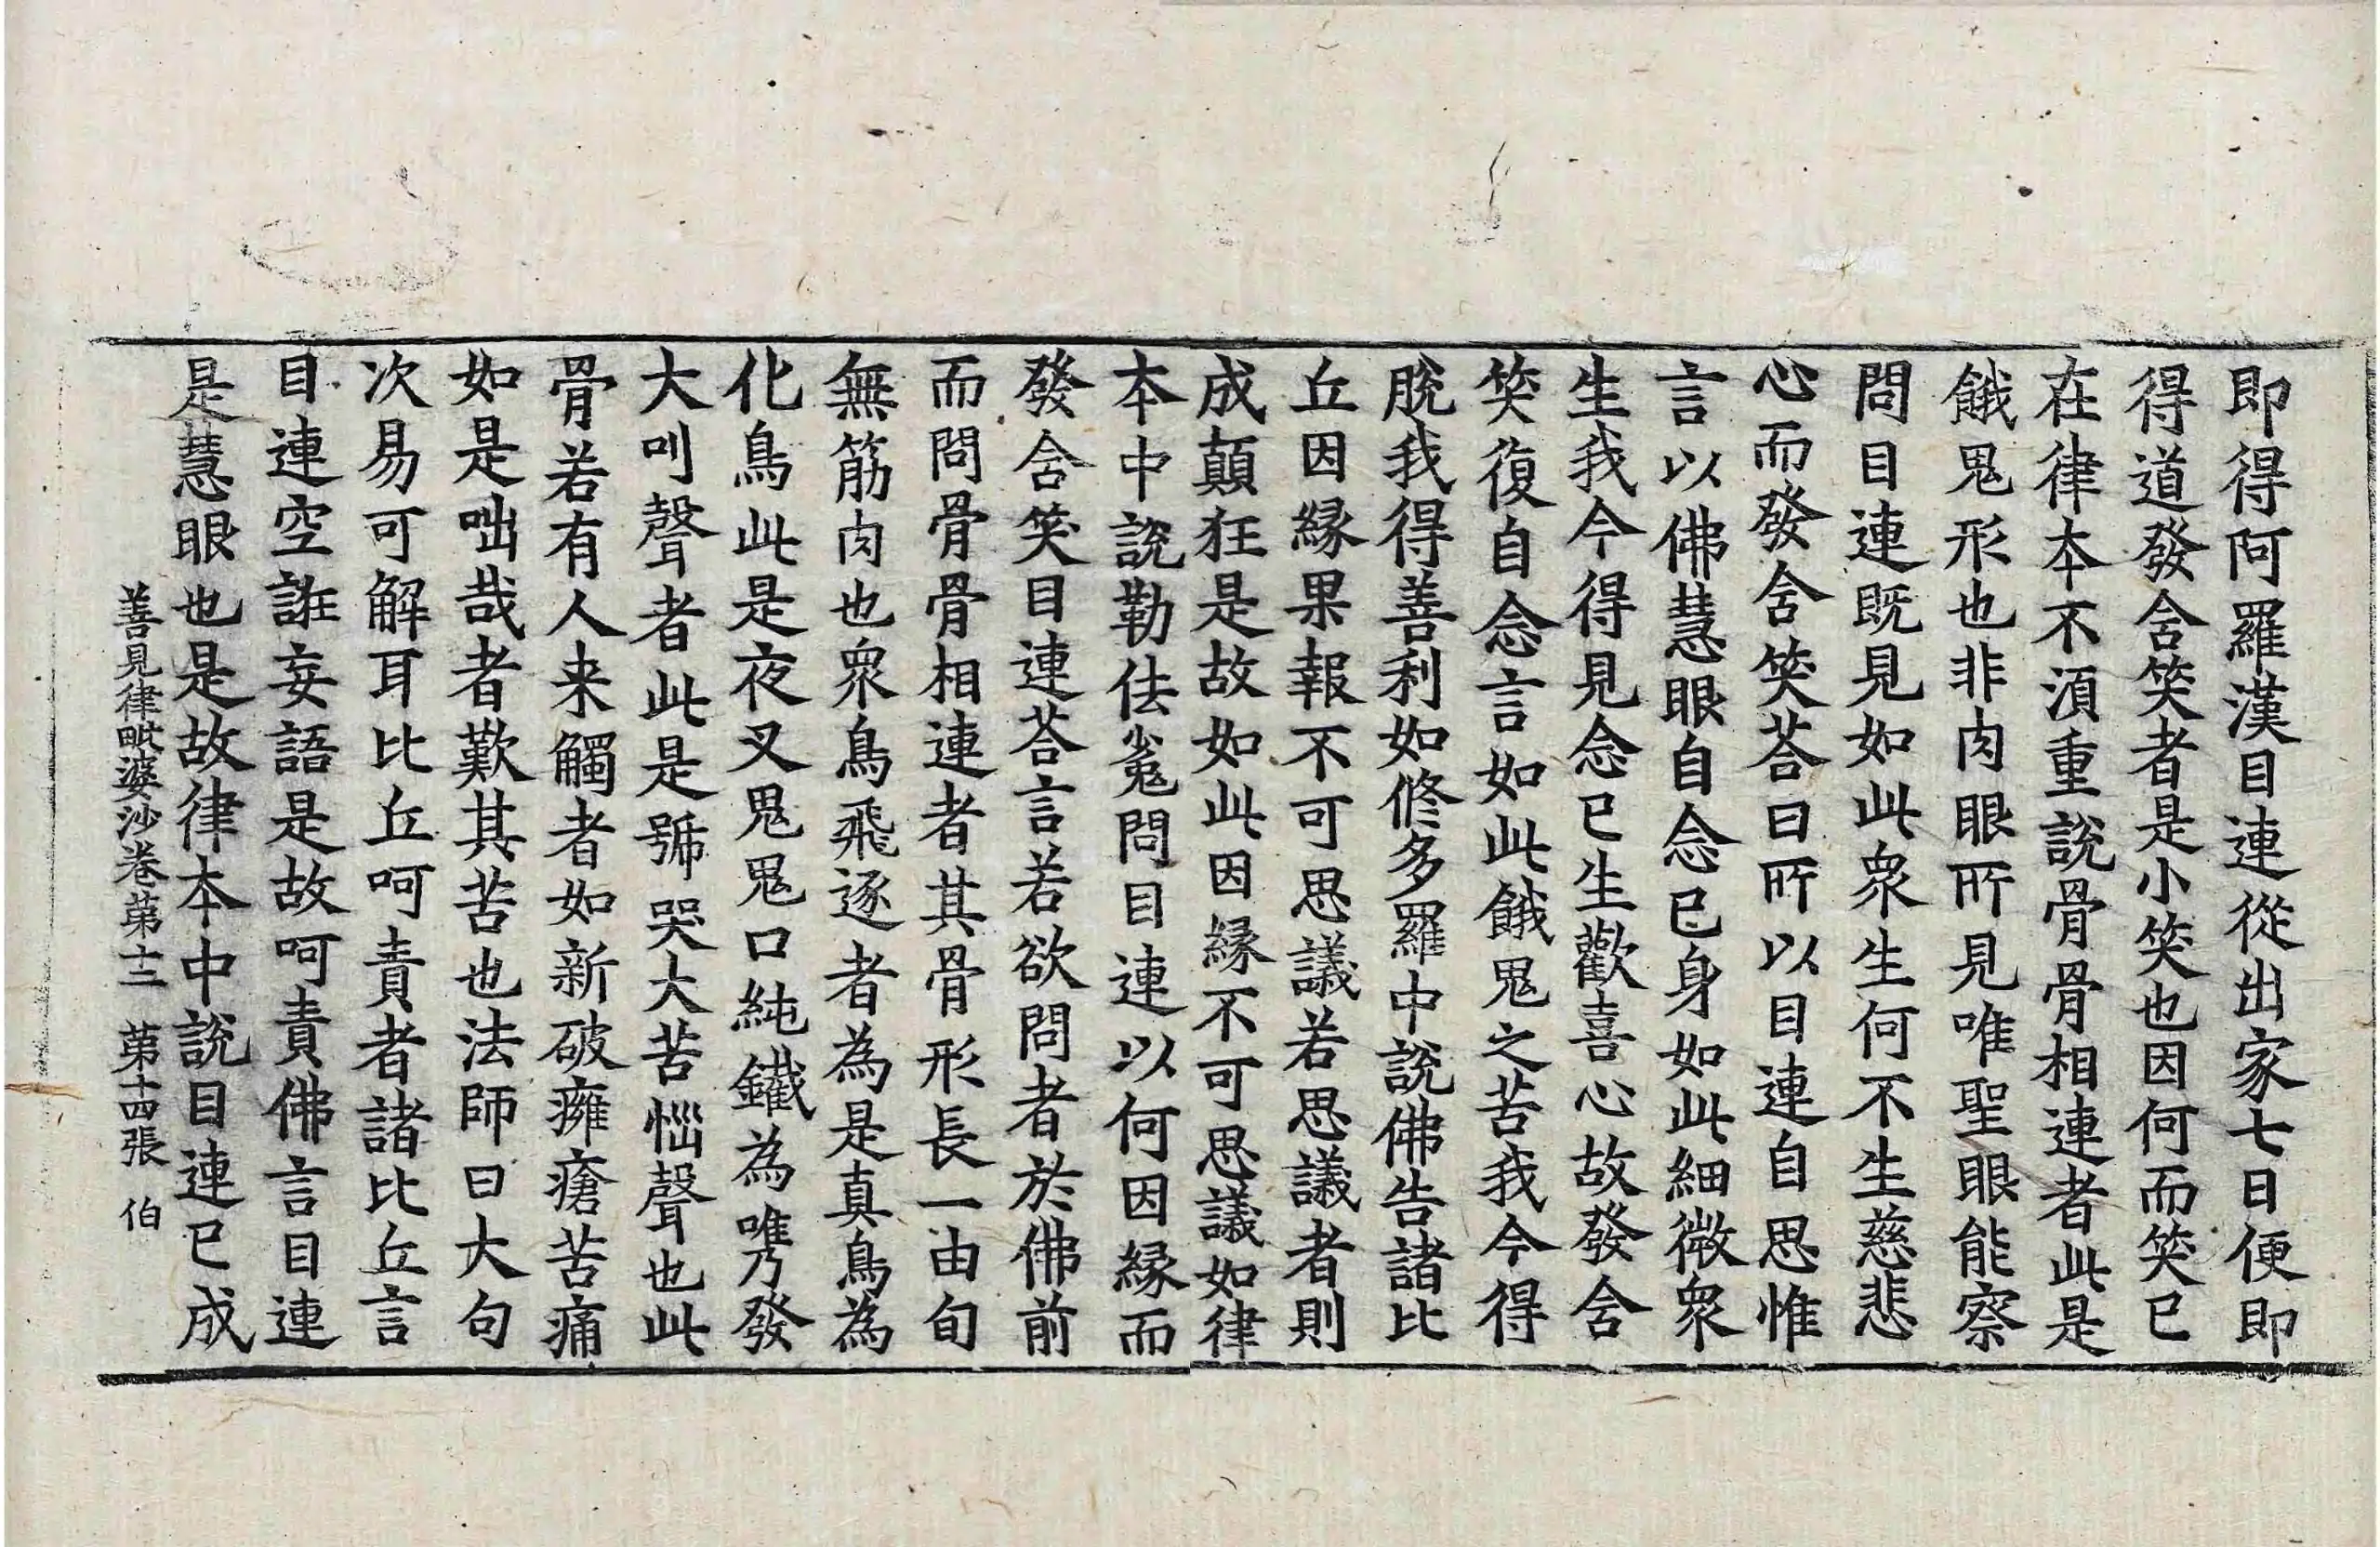 即得阿羅漢目連從出家七日便即
得道發舍笑者是小笑也因何而笑已
在律本不湏重說骨骨相連者此是
餓鬼形也非肉眼所見唯聖眼能察
問目連既見如此衆生何不生慈悲
心而發舍笑荅曰所以目連自思惟
言以佛慧眼自念已身如此細微衆
生我今得見念已生歡喜心故發舍
笑復自念言如此餓鬼之苦我今得
脫我得善利如修多羅中說佛告諸比
丘因緣果報不可思議若思議者則
成顛狂是故如此因緣不可思議如律
本中說勒佉㝹問目連以何因緣而
發舍笑目連荅言若欲問者於佛前
而問骨骨相連者其骨形長一由旬
無筋肉也衆鳥飛逐者為是真鳥為
化鳥此是夜叉鬼鬼口純鐵為㘄發
大叫聲者此是號哭大苦惱聲也此
骨若有人来觸者如新破癰瘡苦痛
如是咄哉者歎其苦也法師曰大句
次易可解耳比丘呵責者諸比丘言
目連空誑妄語是故呵責佛言目連
是慧眼也是故律本中說目連已成
善見律毗婆沙卷第十二 第十四張 伯